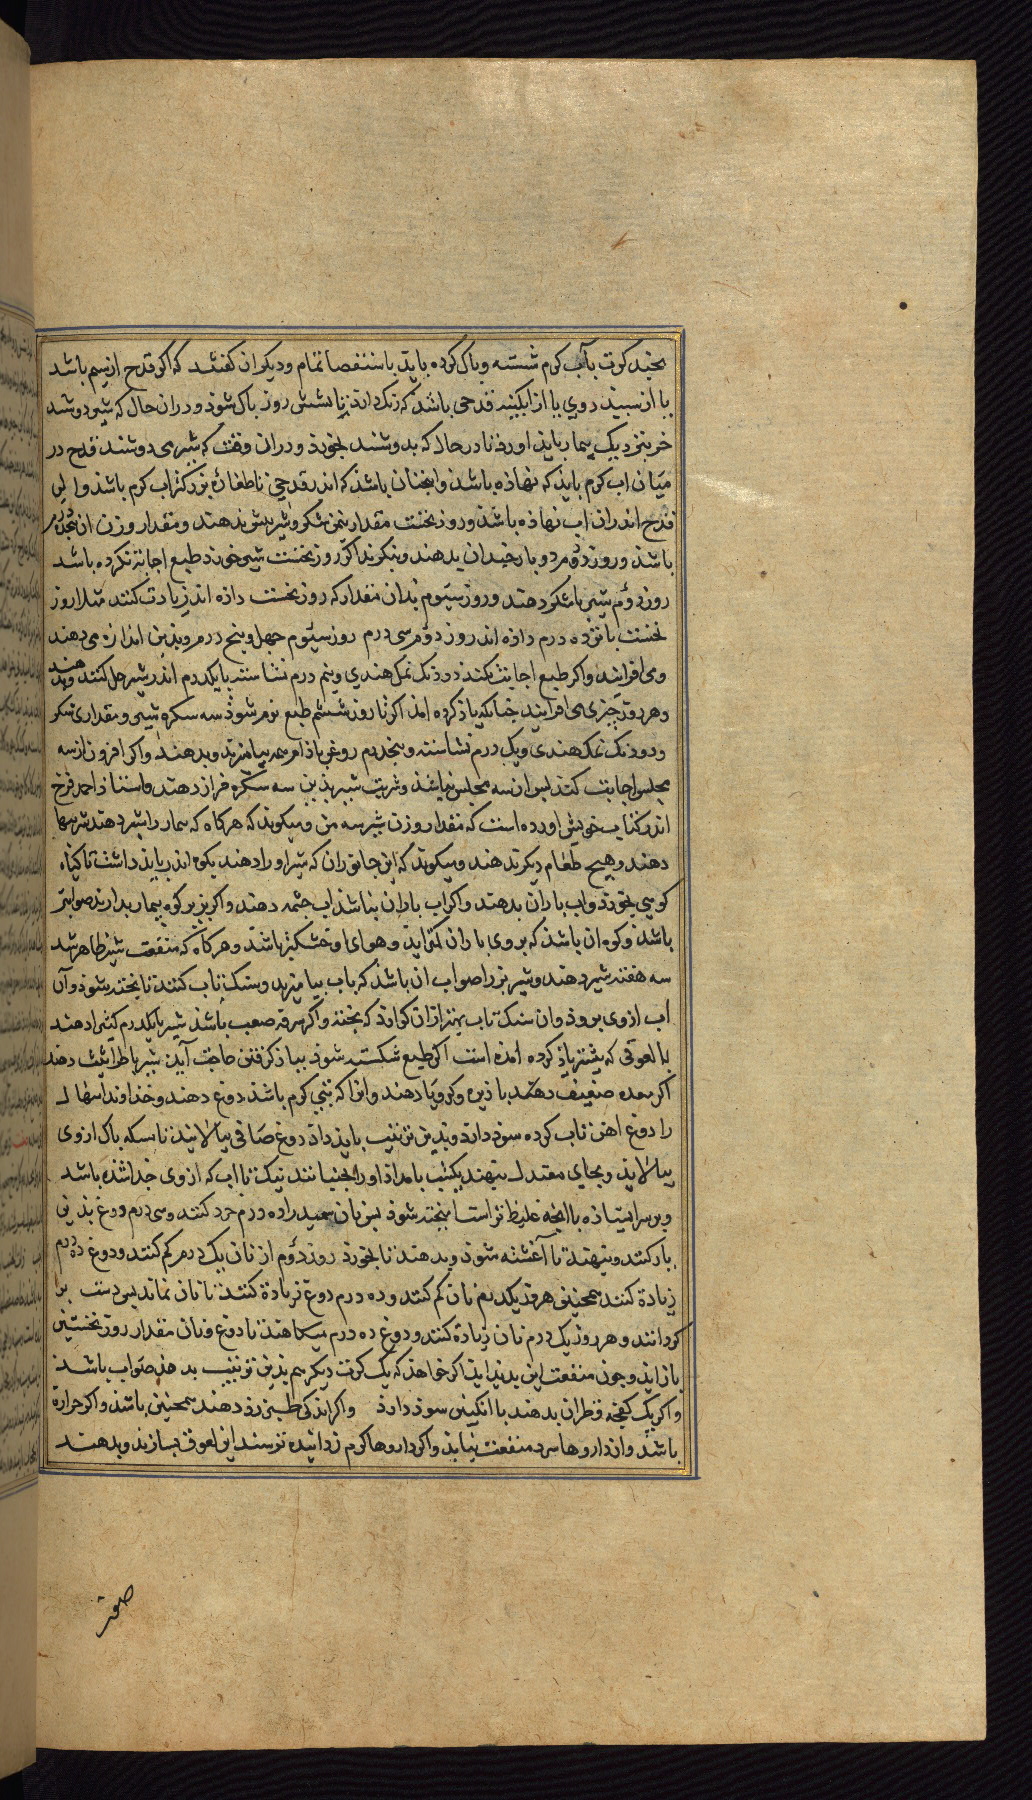 بجند کرت بآب کرم شسته وپاک کرده باید باستقصا تمام ودیکران کفتند که اکر قدح از سیم باشد
یا از سبید روی یا از ابکینه قدحی باشد که زنک دارد زیرا شش روز پاک شود ودران حال که شیر دوشند
خر بنزدیک بیمار باید اورد تا درحال که بدوشند بخورد ودران وقت که شیر می دوشند قدح در
میان اب کرم باید که نهاده باشد وانجنان باشد که اندر قدحی تا طغاری بزرکتر اب کرم باشد واین
قدح اندران اب نهاده باشد وروز نخست مقدار نیمن سکره شیر بیش ندهند ومقدار وزن ان بنجدرم
باشد وروز دوم دو بار جندان بدهند وبنکرند اکر روز نخست شیر خورد طبع اجابة نکرده باشد
روز دوم شیر با شکر دهند وروز سیوم بدان مقدار که روز نخست داده اند زیادت کنند مثلا روز
نخست بانزده درم داده اند روز دوم سی درم روز سیوم جهل وبنج درم وبذین اندازه می دهند
ومی افزایند واکر طبع اجابت نکند دودنک نمک هندی ونیم درم نشاسته با یکدرم اندر شیر حل کنند وبدهند
وهر روز جیزی می افزایند جنانکه یاد کرده امد اکر تا روز ششم طبع نرم شود سه سکره شیر ومقداری شکر
ودودنک نمک هندی ویک درم نشاسته وبنجدرم روغن بادام بهم بیامیزند وبدهند واکر افزون از سه
مجلس اجابت کند بس ازسه مجلس نباشد وشربت شیر بذین سه سکره فراز دهند واستاذ احمد فرخ
اندر کتاب خویش اورده است که مقدار وزن شیر سه من ومیکوید که هرکاه که بیمار را شیر دهند شیر تنها
دهند وهیج طعام دیکر ندهند ومیکوید که این جانوران که شیر اورا دهند بکوه اندر باید داشت تا کیاه
کوهی بخورد واب باران بدهند واکر اب باران نباشد اب جشمه دهند واکر بزبر کوه بیمار بدارند صوابتر
باشد وکوه ان باشد که بروی باران کمتر اید وهوای او خشکتر باشد وهرکاه که منفعت شیر ظاهر شد
سه هفته شیر دهند وشیر بز را صواب ان باشد که باب بیامیزند وسنک تاب کنند تا بخته شود وآن
اب ازوی برود وان سنک تاب بهتر ازان کوارد که بخته واکر سرفه صعب باشد شیر با یکدرم کثیرا دهند
یا لعوقی که بیشتر یاد کرده امده است اکر طبع شکسته شود بباز کرفتن حاجت آید شیر با طراثیث دهند
اکر معده ضعیف دهند با زیره وکرویا دهند وانرا که تبی کرم باشد دوغ دهند وخداوند اسهال
را دوغ اهن تاب کرده سود دارد وبدین ترتیب باید داد دوغ صافی ببالایند تا مسکه باک ازوی
ببالاید وبجای معتدل بنهند یکشب بامداد اورا بجنبانند نیک تا اب که ازوی جدا شده باشد
وبر سر ایستاده با انجه غلیظ تراست امیخته شود بس نان سمید را ده درم خرد کنند وسی درم دوغ بذین
بار کنند وبنهند تا آغشته شود وبدهند تا بخورد روز دوم از نان یک درم کم کنند ودوغ ده درم
زیادة کنند همجنین هر روز یکدرم نان کم کنند وده درم دوغ زیادة کنند تا نان نماند بس دست بر
کردانند وهر روز یک درم نان زیادة کنند ودوغ ده درم میکاهند تا دوغ ونان مقدار روز نخستین
باز اید وجون منفعت این بدید اید اکر خواهد که یک کرت دیکر هم بذین ترتیب بدهند صواب باشد
واکر یک کفجه قطران بدهند با انکبین سود دارد واکر اندکی طین زرد دهند همجنین باشد واکر حرارة
باشد واز داروها سرد منفعت نیابد واکر داروها کرم زداینده ترسند این لعوق بسازند وبدهند
صفت